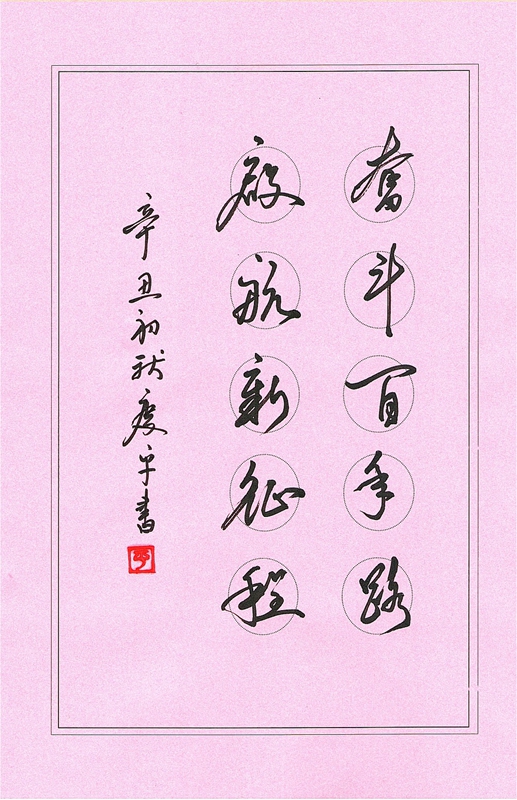 奋斗百年路
启航新征程
辛丑初秋庆平书